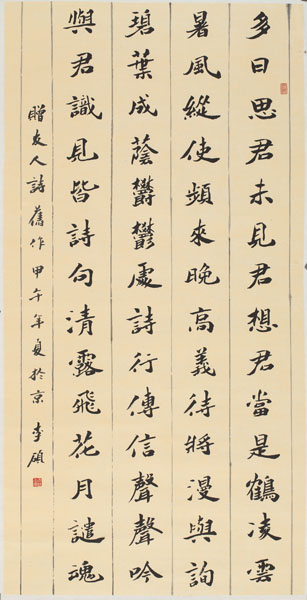 多日思君未見君想君當是鶴凌雲
暑風縱使頻來晚高義待將漫與詢
碧葉成蔭欝欝處詩行傳信聲聲吟
與君識見皆詩句清露飛花月譴魂
贈友人詩舊作甲午年夏於京李碩